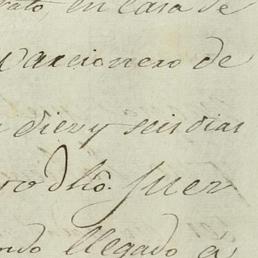 rato, en Casa de
Varcionero de
diez y seis dias
dho. Juez
ndo llegado a